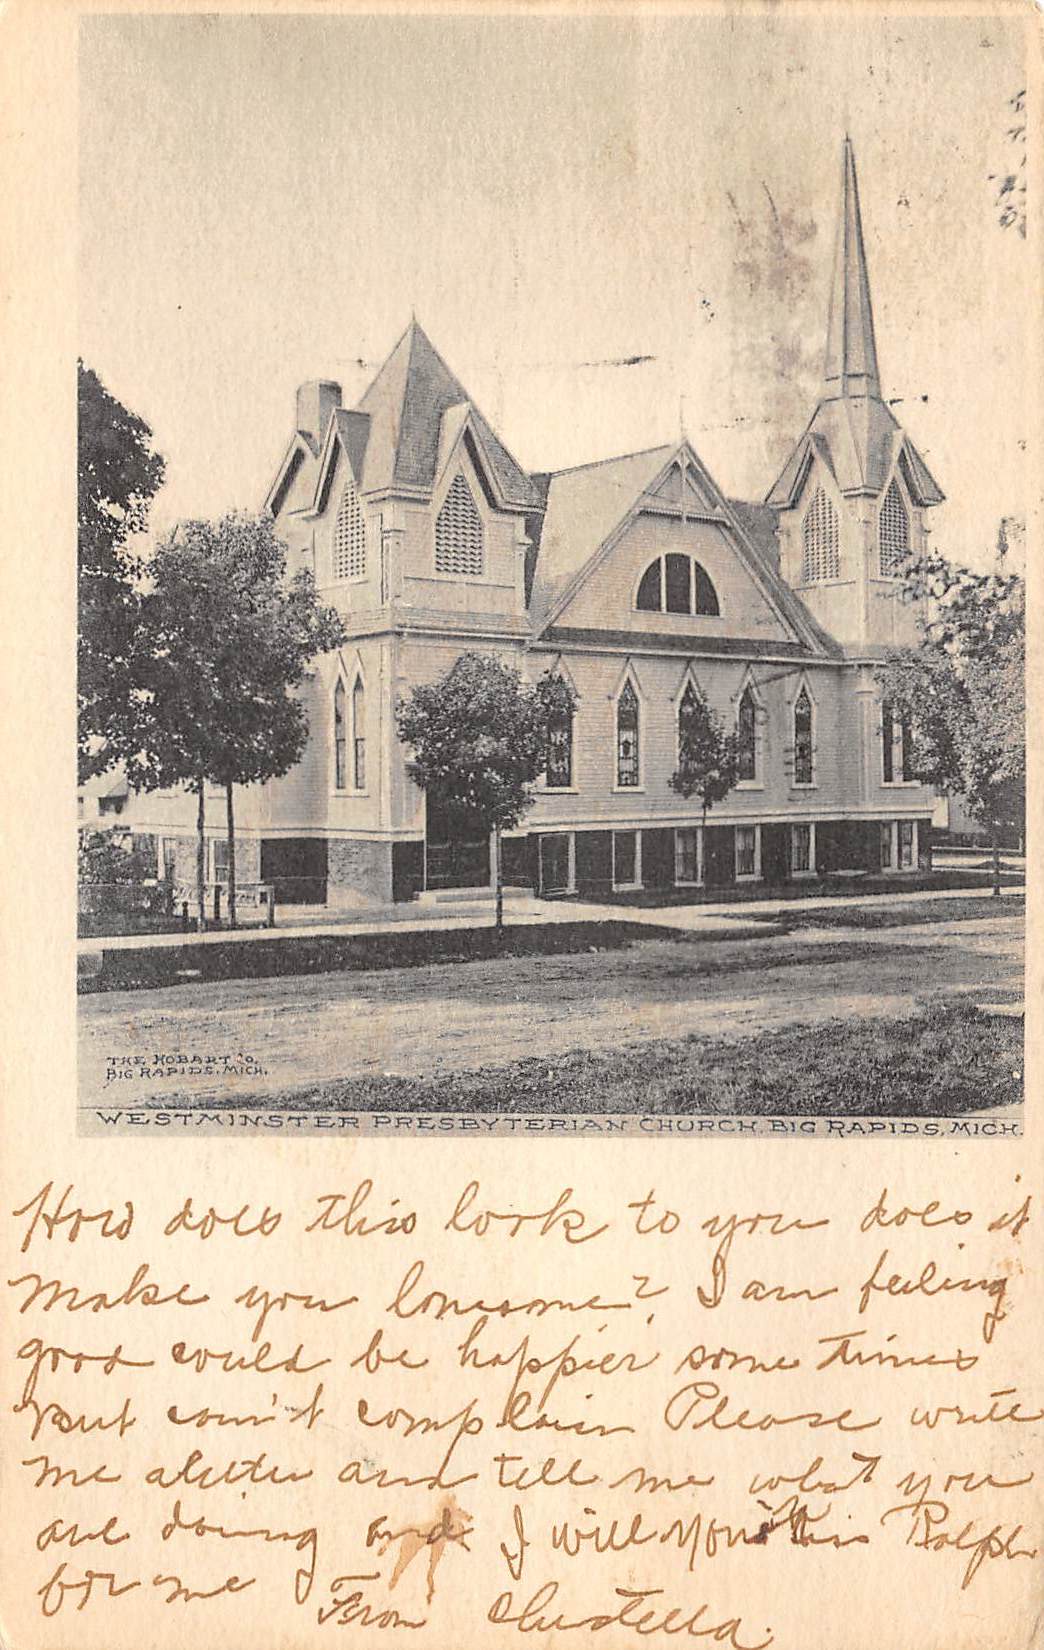 THE HOBART CO.
BIG RAPIDS, MICH.
WESTMINSTER PRESBYTERIAN CHURCH, BIG RAPIDS, MICH.
How does this look to you does it
make you lonesome? I am feeling
good could be happier some times
but can't complain Please write
me a letter and tell me what you
are doing and I will Ralph
for me
From